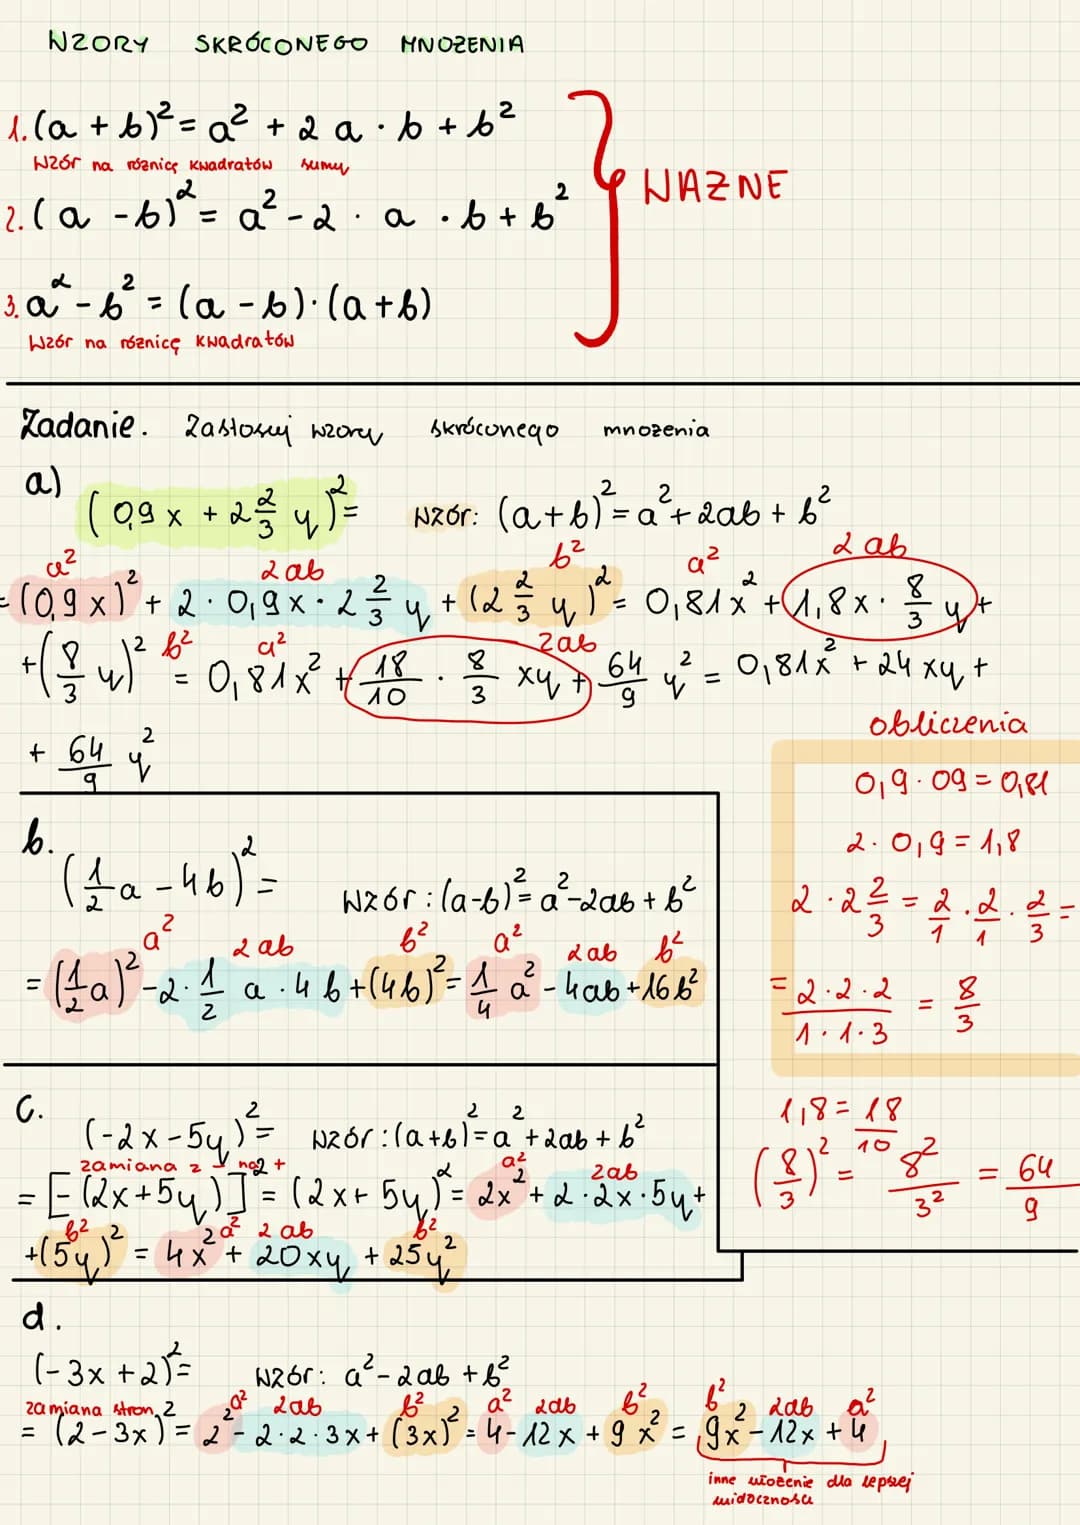 WZORY SKRÓCONEGO MNOŻENIA
1. (a + b)² = a² + 2 a · b + b²
Wzór na różnicę kwadratów sumy
2. (a - b)² = a² - 2 · a · b + b²
WAŻNE
3. a² - b² = (a - b) · (a + b)
Wzór na różnicę kwadratów
Zadanie. Zastosuj wzory skróconego mnożenia
a)
(0,9 x + 2 2/3 y)² = Wzór: (a+b)² = a² + 2ab + b²
a² 2 ab b² a² 2 ab
= (0,9 x)² + 2 · 0,9 x · 2 2/3 y + (2 2/3 y)² = 0,81x² + 1,8 x · 8/3 y +
b² a² 2ab
+ (8/3 y)² = 0,81x² + 18/10 · 8/3 xy + 64/9 y² = 0,81x² + 24 xy +
+ 64/9 y²
obliczenia
0,9 · 09 = 0,81
2 · 0,9 = 1,8
2 · 2 2/3 = 2/1 · 2/1 · 2/3 =
= 2·2·2/1·1·3 = 8/3
1,8 = 18/10
(8/3)² = 8²/3² = 64/9
b.
(1/2 a - 4b)² = Wzór: (a-b)² = a² - 2ab + b²
a² 2 ab b² a² 2ab b²
= (1/2 a)² - 2 · 1/2 a · 4 b + (4b)² = 1/4 a² - 4ab + 16b²
c.
(-2x - 5y)² = Wzór: (a+b)² = a² + 2ab + b²
zamiana z - na + a² 2ab
= [-(2x+5y)]² = (2x+5y)² = 2x² + 2 · 2x · 5y +
b² a² 2 ab b²
+ (5y)² = 4x² + 20xy + 25y²
d.
(-3x + 2)² = Wzór: a² - 2ab + b²
zamiana stron a² 2ab b² a² 2ab b² b² 2ab a²
= (2 - 3x)² = 2² - 2·2·3x + (3x)² = 4 - 12x + 9x² = 9x² - 12x + 4
inne ułożenie dla lepszej
widoczności